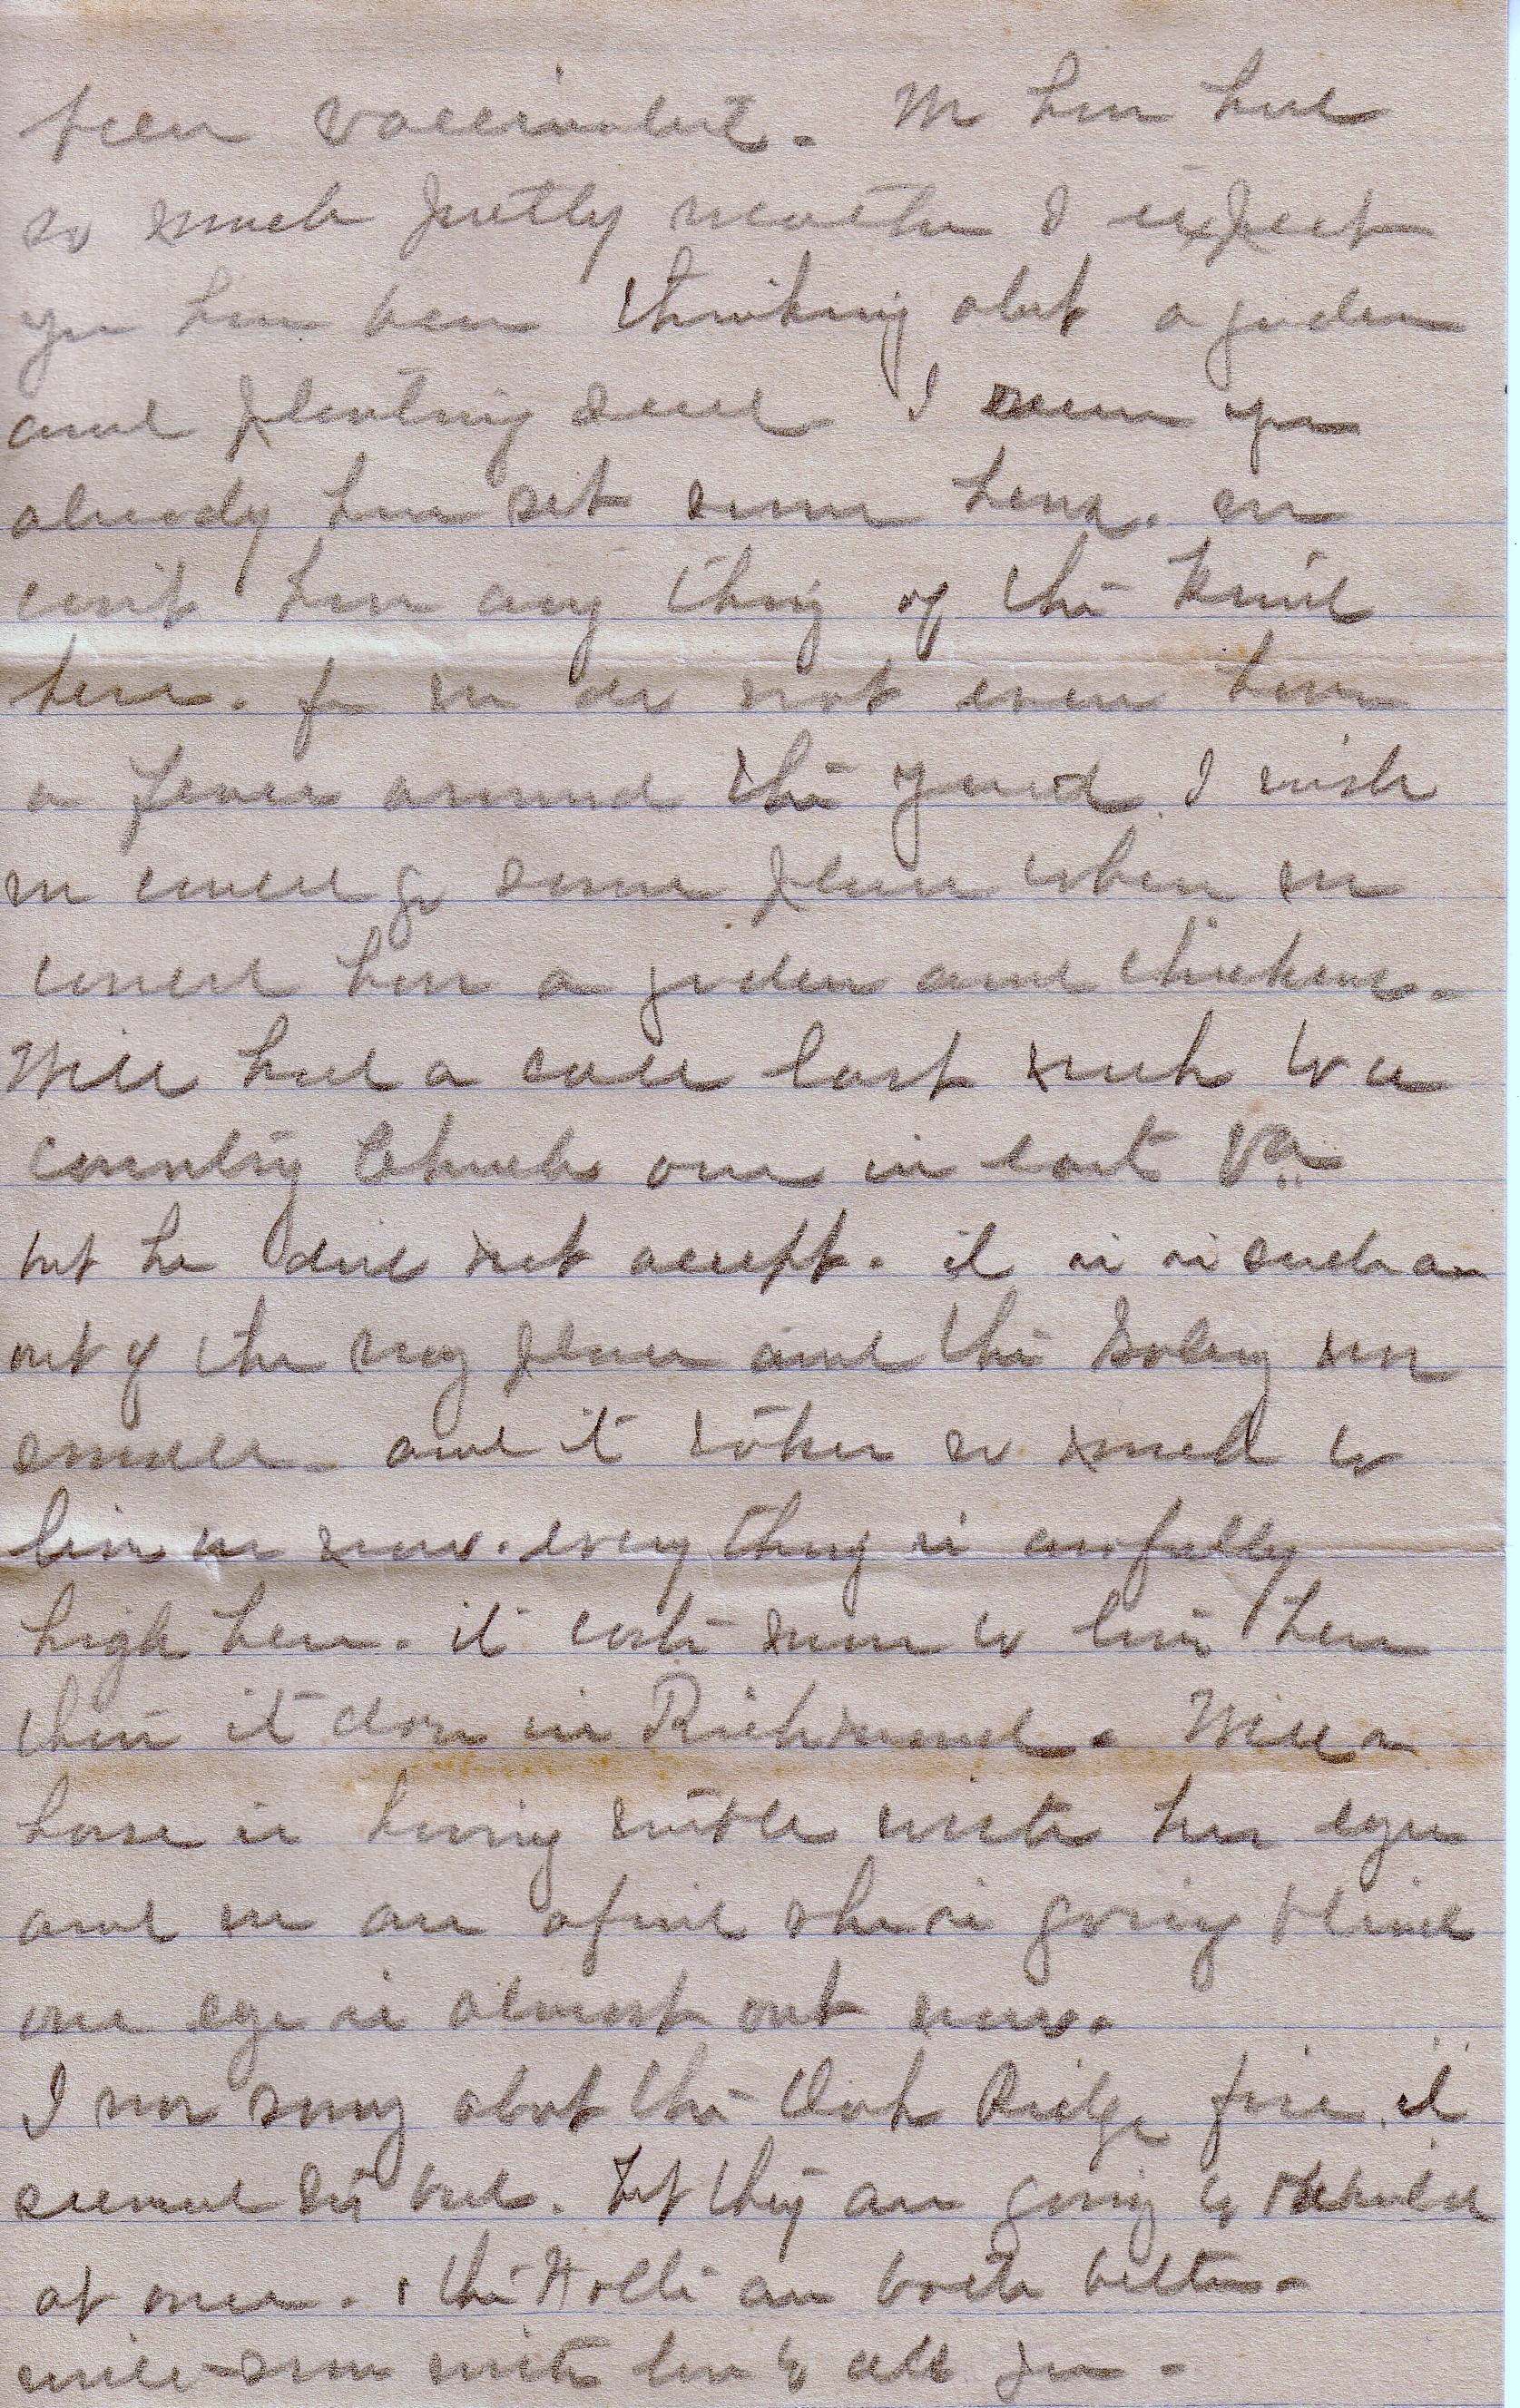 been vaccinated. We have had
so much pretty weather I expect
you have been thinking about a garden
and planting seed I know you
already have set some hens. we
can't have any thing of the kind
here. for we do not even have
a fence around the yard. I wish
we could go some place where we
could have a garden and chickens.
Will had a call last week to a
country Church one in east Va.
but he did not accept. it is in such an
out of the way place and the Salary was
small. and it takes so much to
live on now. every thing is awfully
high here. it costs more to live here
than it does in Richmond. Will's
horse is having trouble with her eyes
and we are afraid she is going blind
one eye is almost out now.
I was sorry about the Oak Ridge fire. it
seemed so bad. but they are going to rebuild
at once. the are both better.
write soon with love to all you.